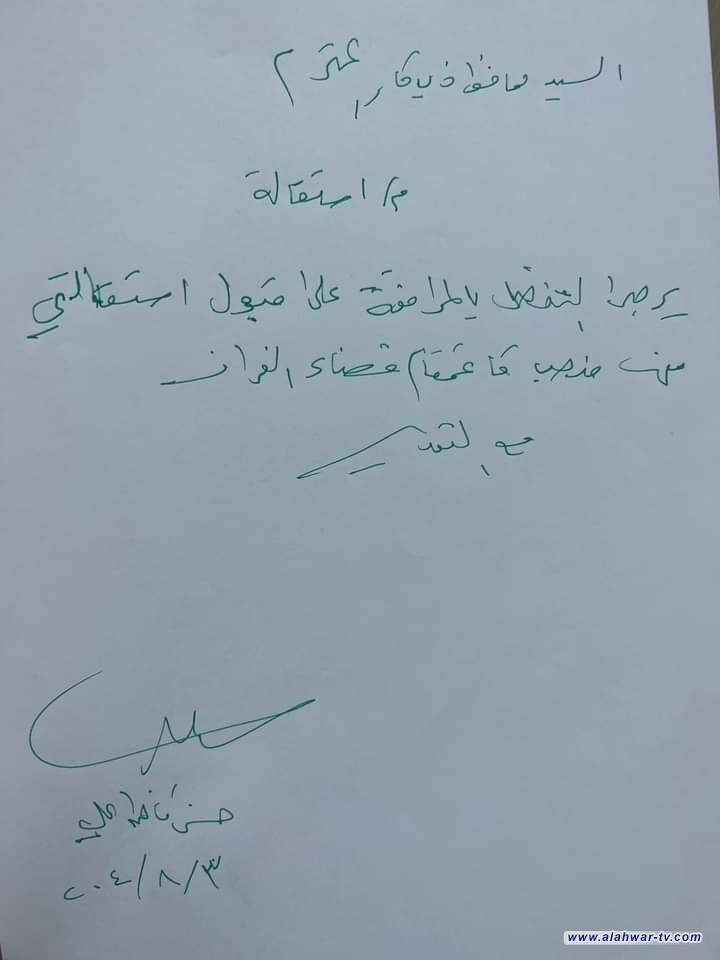 السيد محافظ ذي قار المحترم
م/ استقالة
يرجى التفضل بالموافقة على قبول استقالتي
من منصب قائممقام قضاء الغراف
مع التقدير
حسن كاظم علي
٣/٨/٢٠٤
www.alahwar-tv.com